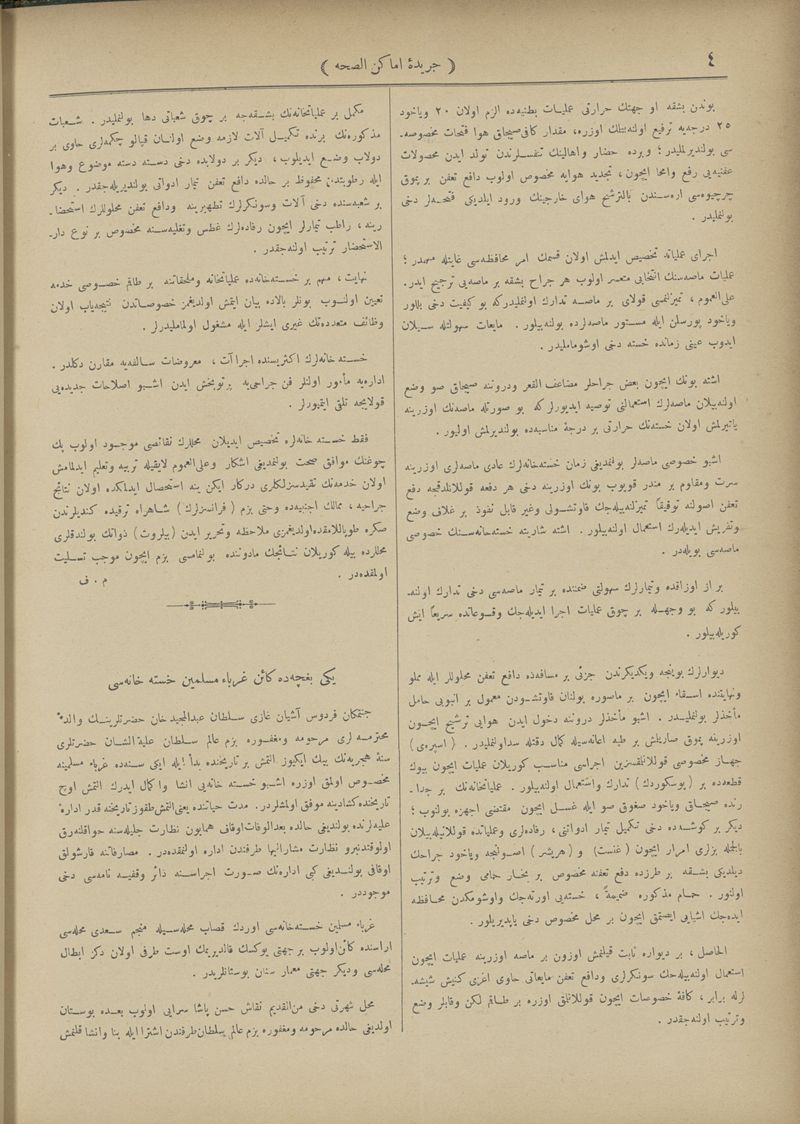 ٤
( جريدۀ اماكن الصحه )
بوندن بشقه او جهتك حرارتى عمليات بطنيه‌ده الزم اولان ٢٠ وياخود
٢٥ درجه‌يه ترفيع اولنه‌بيلمك اوزره، مقدار كافى صيجاق هوا فتحات مخصوصه-
سى بولنديرلمليدر ؛ ويرده حضار واهالينك تنفسلرندن تولد ايدن محصولات
عفنيه‌يى رفع وامحا ايچون، تجديد هوايه مخصوص اولوب دافع تعفن بر پموق
چرچيوه‌سى اره‌سندن بالترشح هواى خارجينك ورود ايلديكى فتحه‌لر دخى
بولنمليدر .
اجراى عملياته تخصيص ايدلمش اولان قسمك امر محافظه‌سى غايتله مهمدر ؛
عمليات ماصه‌سنك انتخابى متعسر اولوب هر جراح بشقه بر ماصه‌يى ترجيح ايدر.
على‌العموم ، تميزلنمسى قولاى بر ماصه تدارك اولنمليدركه بو كيفيت دخى بللور
وياخود پورسلن ايله مستور ماصه‌لرده بولنه‌بيلور . مايعات سهولتله سيلان
ايدوب عينى زمانده خسته دخى اوشومامليدر .
اشته بونك ايچون بعض جراحلر مضاعف القعر ودروننه صيجاق صو وضع
اولنه‌بيلان ماصه‌لرك استعمالنى توصيه ايديورلر كه بو صورتله ماصه‌نك اوزرينه
ياتيرلمش اولان خسته‌نك حرارتى بر درجۀ مناسبه‌ده بولنديرلمش اوليور .
اشبو خصوصى ماصه‌لر بولنمديغى زمان خسته‌خانه‌لرك عادى ماصه‌لرى اوزرينه
سرت ومقاوم بر مندر قويوب بونك اوزرينه دخى هر دفعه قوللانلدقجه دفع
تعفن اصولنه توفيقاً تميزلنه‌بيله‌جك قاوتشولى وغير قابل نفوذ بر غلافى وضع
وتفريش ايديله‌رك استعمال اولنه‌بيلور . اشته شاريته خسته‌خانه‌سنك خصوصى
ماصه‌سى بويله‌در .
بر از اوزاقده وتيمارلرك سهولتى ضمننده بر تيمار ماصه‌سى دخى تدارك اولنه-
بيلور كه بو وجهله بر چوق عمليات اجرا ايديله‌جك وقوعاتده سريعاً ايش
كوريله‌بيلور .
ديوارلرك بوينجه ويكديكرندن جزئى بر مسافه‌ده دافع تعفن محلوللر ايله مملو
ونهايتنده اسقاء ايچون بر ماصوره بولنان قاوتشودن معمول بر انبوبى حامل
مأخذلر بولنمليدر . اشبو مأخذلر دروننه دخول ايدن هوايى ترشيح ايچون
اوزرينه پموق صاريلمش بر طپه اعانه‌سيله كمال دقتله سد اولنمليدر . (اسپرەى)
جهاز مخصوصى قوللانلقسزين اجراسى مناسب كوريلان عمليات ايچون بيوك
قطعه‌ده بر (پوسكوردك) تدارك واستعمال اولنه‌بيلور . عملياتخانه‌نك بر جدا-
رنده صيجاق وياخود صغوق صو ايله غسل ايچون مقتضى اجهزه بولنوب ؛
ديكر بر كوشه‌ده دخى تكميل تيمار ادواتنى ، رفاده‌لرى وعملياتده قوللانيله‌بيلان
بالجمله بزلرى امرار ايچون (غنست) و (هريشر) اصولنجه وياخود جراحك
ديلديكى بشقه بر طرزده دفع تعفنه مخصوص بر بخار حمامى وضع وترتيب
اولنور . حمام مذكوره ضميمةً ، خسته‌يى اورته‌جك واوشومكدن محافظه
ايده‌جك اشيايى ايصتمق ايچون بر محل مخصوص دخى ياپديريلور .
الحاصل ، بر ديواره ثابت قيلنمش اوزون بر ماصه اوزرينه عمليات ايچون
استعمال اولنه‌بيله‌جك سونكرلرى ودافع تعفن مايعاتى حاوى اغزى كنيش شيشه-
لرله برابر ، كافۀ خصوصات ايچون قوللانلمق اوزره بر طاقم لكن وقابلر وضع
وترتيب اولنه‌جقدر .
مكمل بر عملياتخانه‌نك بشقه‌جه بر چوق شعباتى دها بولنمليدر . شعبات
مذكوره‌نك برنده تكميل آلات لازمه وضع اولنان قپالو چكمه‌لرى حاوى بر
دولاب وضع ايديلوب ، ديكر بر دولابده دخى دسته دسته موضوع وهوا
ايله رطوبتدن محفوظ بر حالده دافع تعفن تيمار ادواتى بولنديريله‌جقدر . ديكر
بر شعبه‌سنده دخى آلات وسونكرلرك تطهيرينه ودافع تعفن محلوللرك استحضا-
رينه ، راطب تيمارلر ايچون رفاده‌لرك غطس وتغليه‌سنه مخصوص بر نوع دار-
الاستحضار ترتيب اولنه‌جقدر .
نهايت ، مهم بر خسته‌خانه‌ده عملياتخانه وملحقاتنه بر طاقم خصوصى خدمه
تعيين اولنوب بونلر بالاده بيان ايتمش اولديغمز خصوصاتدن نتيجه‌ياب اولان
وظائف متعدده‌نك غيرى ايشلر ايله مشغول اولمامليدرلر .
خسته خانه‌لرك اكثريسنده اجراآت ، معروضات سالفه‌يه مقارن دكلدر .
اداره‌يه مأمور اولنلر فن جراحى‌يه پرتوبخش ايدن اشبو اصلاحات جديده‌يى
قولايجه تلقى ايتميورلر .
فقط خسته خانه‌لره تخصيص ايديلان محللرك نقائصى موجود اولوب پك
چوغنك موافق صحت بولنمديغى اشكار وعلى‌العموم لايقيله تربيه وتعليم ايدلمامش
اولان خدمه‌نك تقيدسزلكلرى دركار ايكن ينه استحصال ايدلمكده اولان نتائج
جراحيه ، ممالك اجنبيه‌ده وحتى بزم (فرانسزلرك) شاهراه ترقيده كنديلرندن
صكره طوپاللامقده‌اولديغمزى ملاحظه وتحرير ايدن (بيلروت) ذواتك بولندقلرى
محللرده بيله كوريلان نتائجك مادوننده بولنمامسى بزم ايچون موجب تسليت
اولمقده‌در .
م . ف
يكى بغچه‌ده كائن غرباء مسلمين خسته خانه‌سى
جنتمكان فردوس آشيان غازى سلطان عبدالمجيد خان حضرتلرينك والدۀ
محترمه لرى مرحومه ومغفوره بزم عالم سلطان علية‌الشان حضرتلرى
سنۀ هجريه‌نك بيك ايكيوز التمش بر تاريخنده بدأ ايله ايكى سنه‌ده غرباء مسلمينه
مخصوص اولمق اوزره اشبو خسته خانه‌يى انشا واكمال ايدرك التمش اوچ
تاريخنده كشادينه موفق اولمشلردر . مدت حياتنده يعنى التمش طقوز تاريخنه قدر ادارۀ
عليه‌لرنده بولنديغى حالده بعدالوفات اوقاف همايون نظارت جليله‌سنه حواقلنه‌رق
اولوقتدنبرو نظارت مشاراليها طرفندن اداره اولنمقده‌در . مصارفاتنه قارشولق
اوقافى بولنديغى كبى اداره‌نك صورت اجراسنه دائر وقفيه نامه‌سى دخى
موجوددر .
غرباء مسلمين خسته‌خانه‌سى اوردك قصاب محله‌سيله منجم سعدى محله‌سى
اراسنده كائن اولوب بر جهتى يوكسك قالديريمك اوست طرفى اولان دكر ابطال
محله‌سى وديكر جهتى معمار سنان بوستانلريدر .
محل شهرتى دخى من‌القديم نقاش حسن پاشا سرايى اولوب بعده بوستان
اولديغى حالده مرحومه ومغفوره بزم عالم سلطان طرفندن اشترا ايله بنا وانشا قلنمش